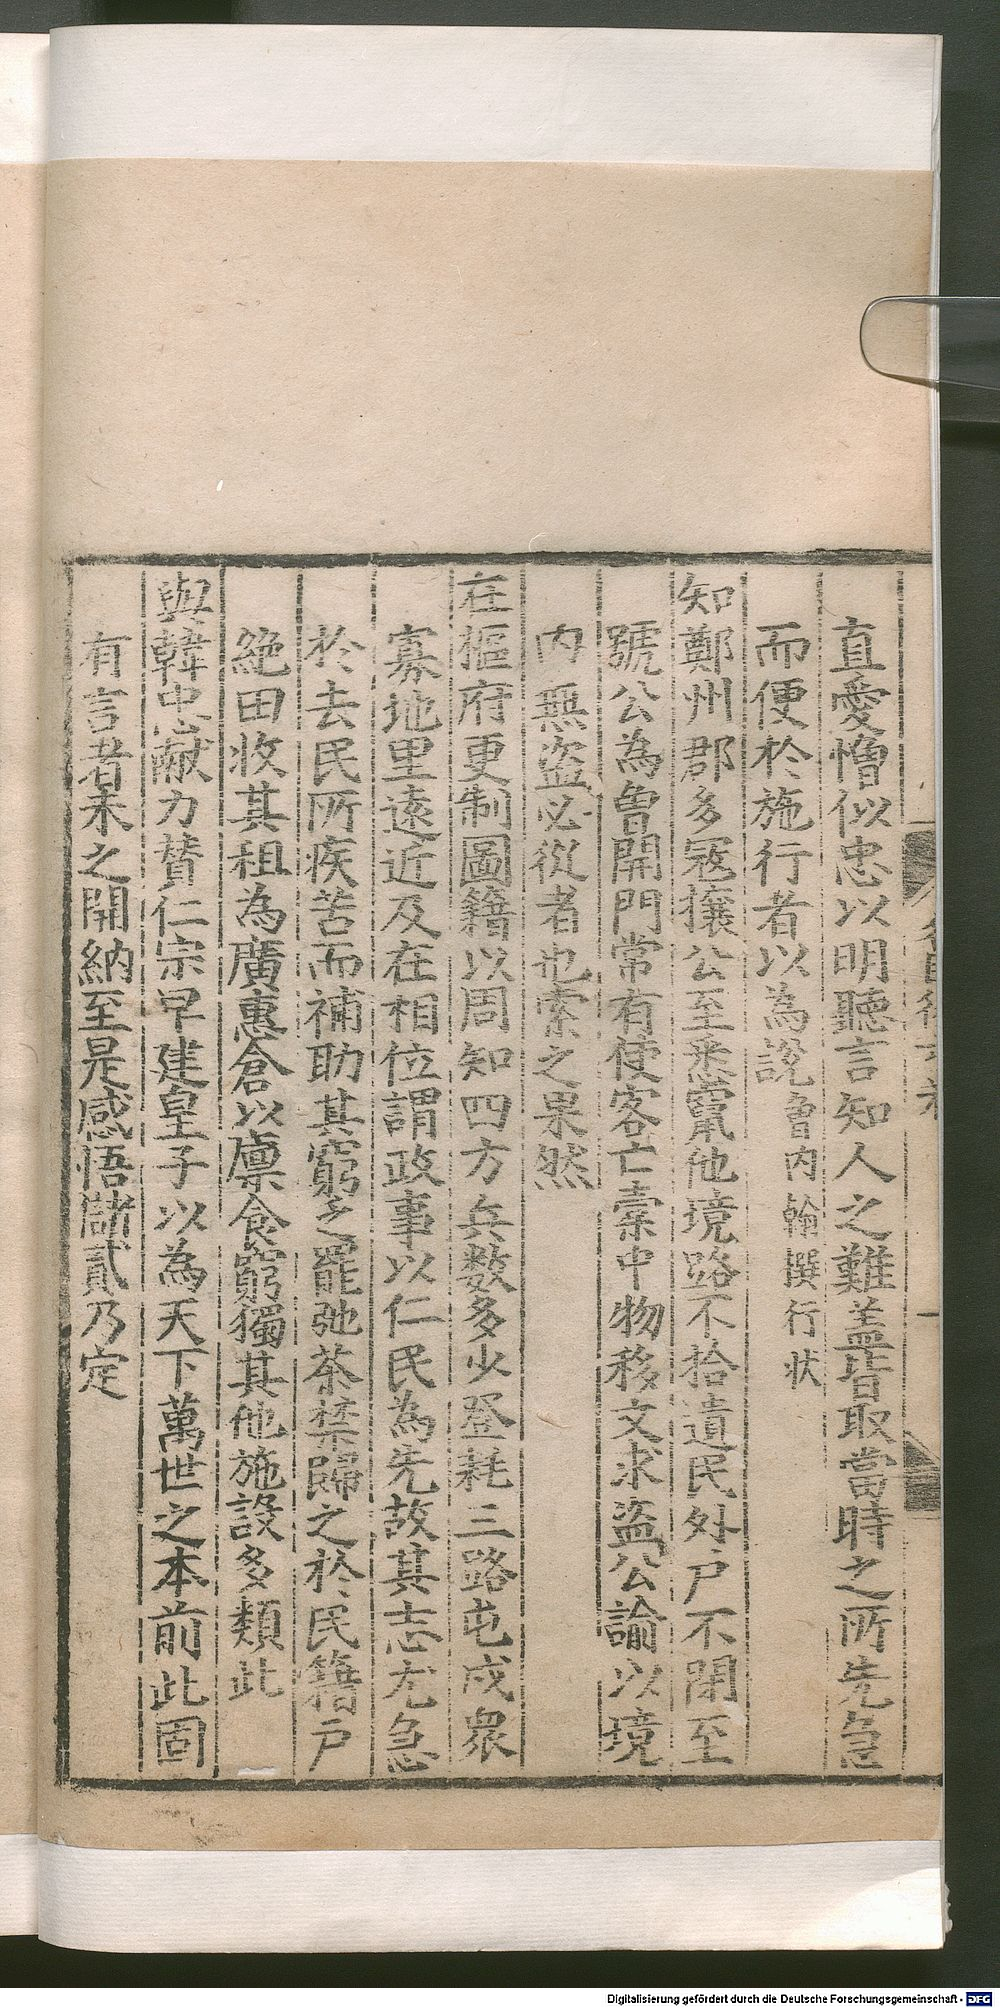 直愛憎似忠以明聽言知人之難盖皆取當時之所先急
而便於施行者以為說曾内翰撰行狀
知鄭州郡多寇攘公至悉竄他境路不拾遺民外戶不閉至
號公為曾開門常有使客亡橐中物移文求盜公諭以境
内無盜必從者也索之果然
在樞府更制圖籍以周知四方兵数多少登耗三路屯戍衆
寡地里遠近及在相位謂政事以仁民為先故其志尤急
於去民所疾苦而補助其窮乏罷弛茶禁歸之於民籍戶
絶田收其租為廣惠倉以廪食窮獨其他施設多類此
與韓忠献力賛仁宗早建皇子以為天下萬世之本前此固
有言者未之開納至是感悟儲貳乃定
Digitalisierung gefördert durch die Deutsche Forschungsgemeinschaft - DFG